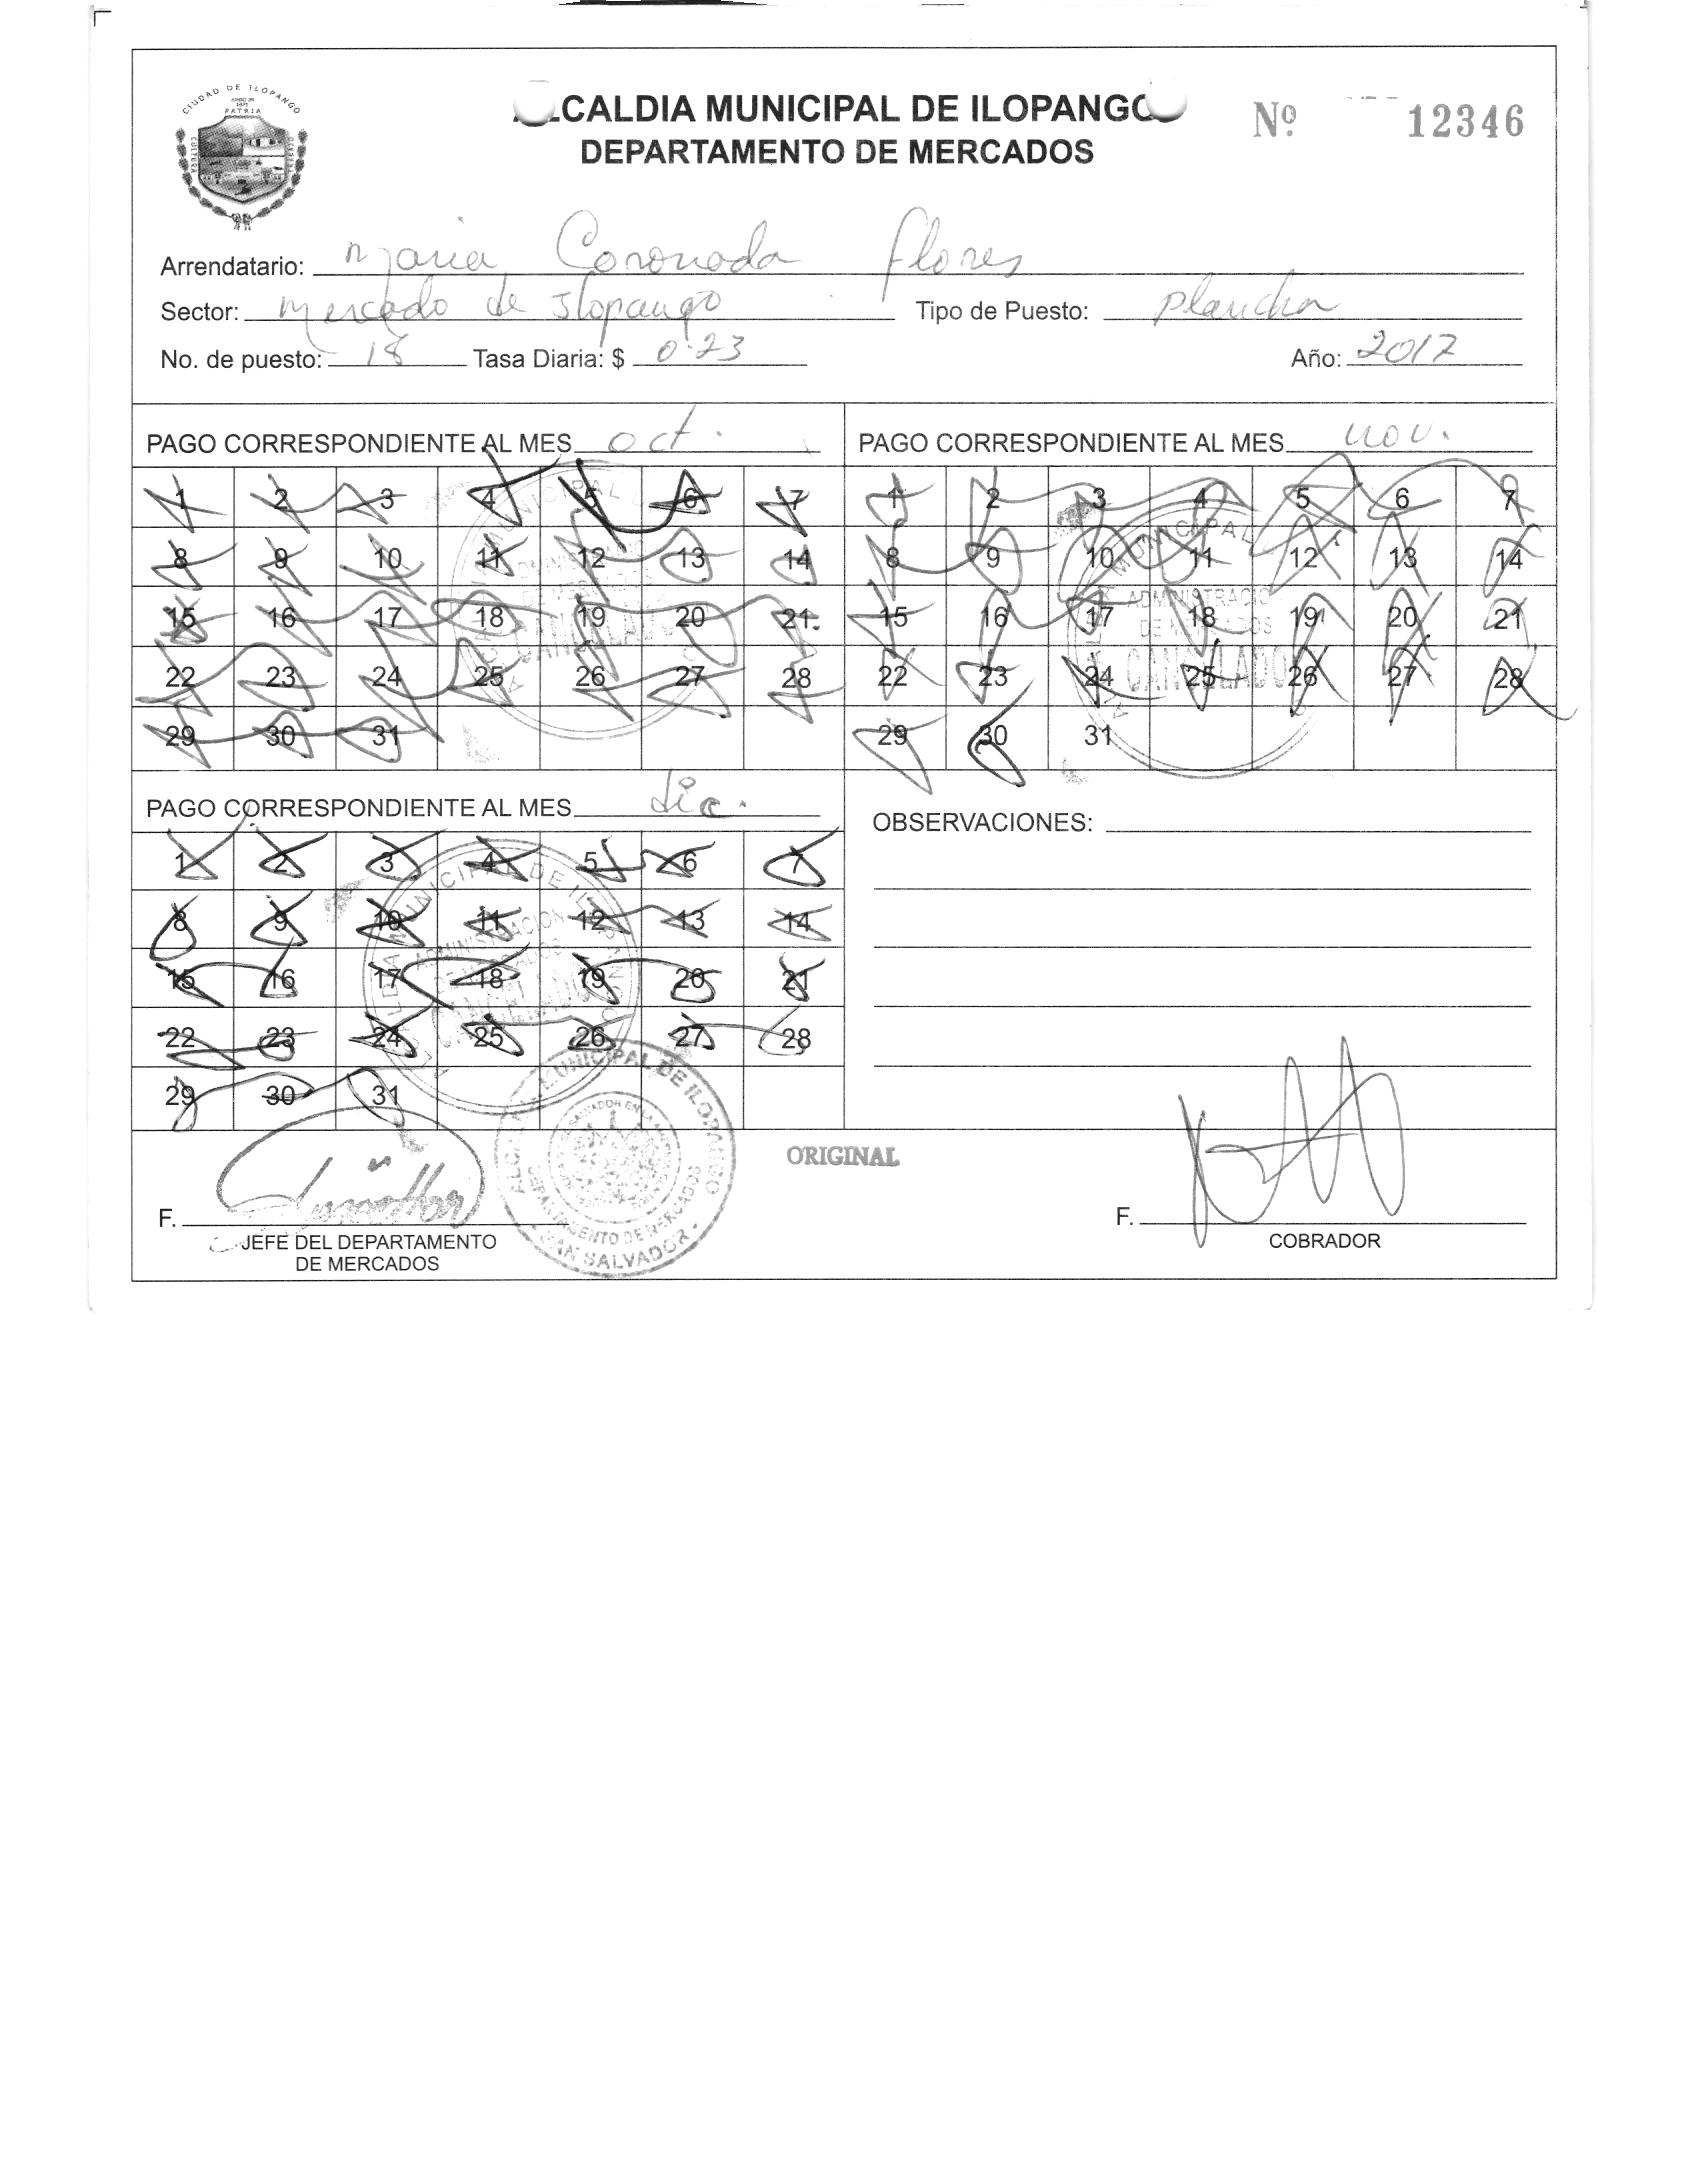 CIUDAD DE ILOPANGO
PATRIA
CULTURA
ALCALDIA MUNICIPAL DE ILOPANGO
DEPARTAMENTO DE MERCADOS
Nº 12346
Arrendatario: Maria Coronada Flores
Sector: Mercado de Ilopango Tipo de Puesto: plancha
No. de puesto: 18 Tasa Diaria: $ 0.23 Año: 2017
PAGO CORRESPONDIENTE AL MES oct.
1 2 3 4 5 6 7
8 9 10 11 12 13 14
15 16 17 18 19 20 21
22 23 24 25 26 27 28
29 30 31
PAGO CORRESPONDIENTE AL MES nov.
1 2 3 4 5 6 7
8 9 10 11 12 13 14
15 16 17 18 19 20 21
22 23 24 25 26 27 28
29 30 31
MUNICIPAL
ADMINISTRACIO
DE MERCADOS
CANCELADO
PAGO CORRESPONDIENTE AL MES dic.
1 2 3 4 5 6 7
8 9 10 11 12 13 14
15 16 17 18 19 20 21
22 23 24 25 26 27 28
29 30 31
OBSERVACIONES:
ALCALDIA MUNICIPAL DE ILOPANGO
DEPARTAMENTO DE MERCADOS
SAN SALVADOR
ORIGINAL
F.
JEFE DEL DEPARTAMENTO
DE MERCADOS
F.
COBRADOR